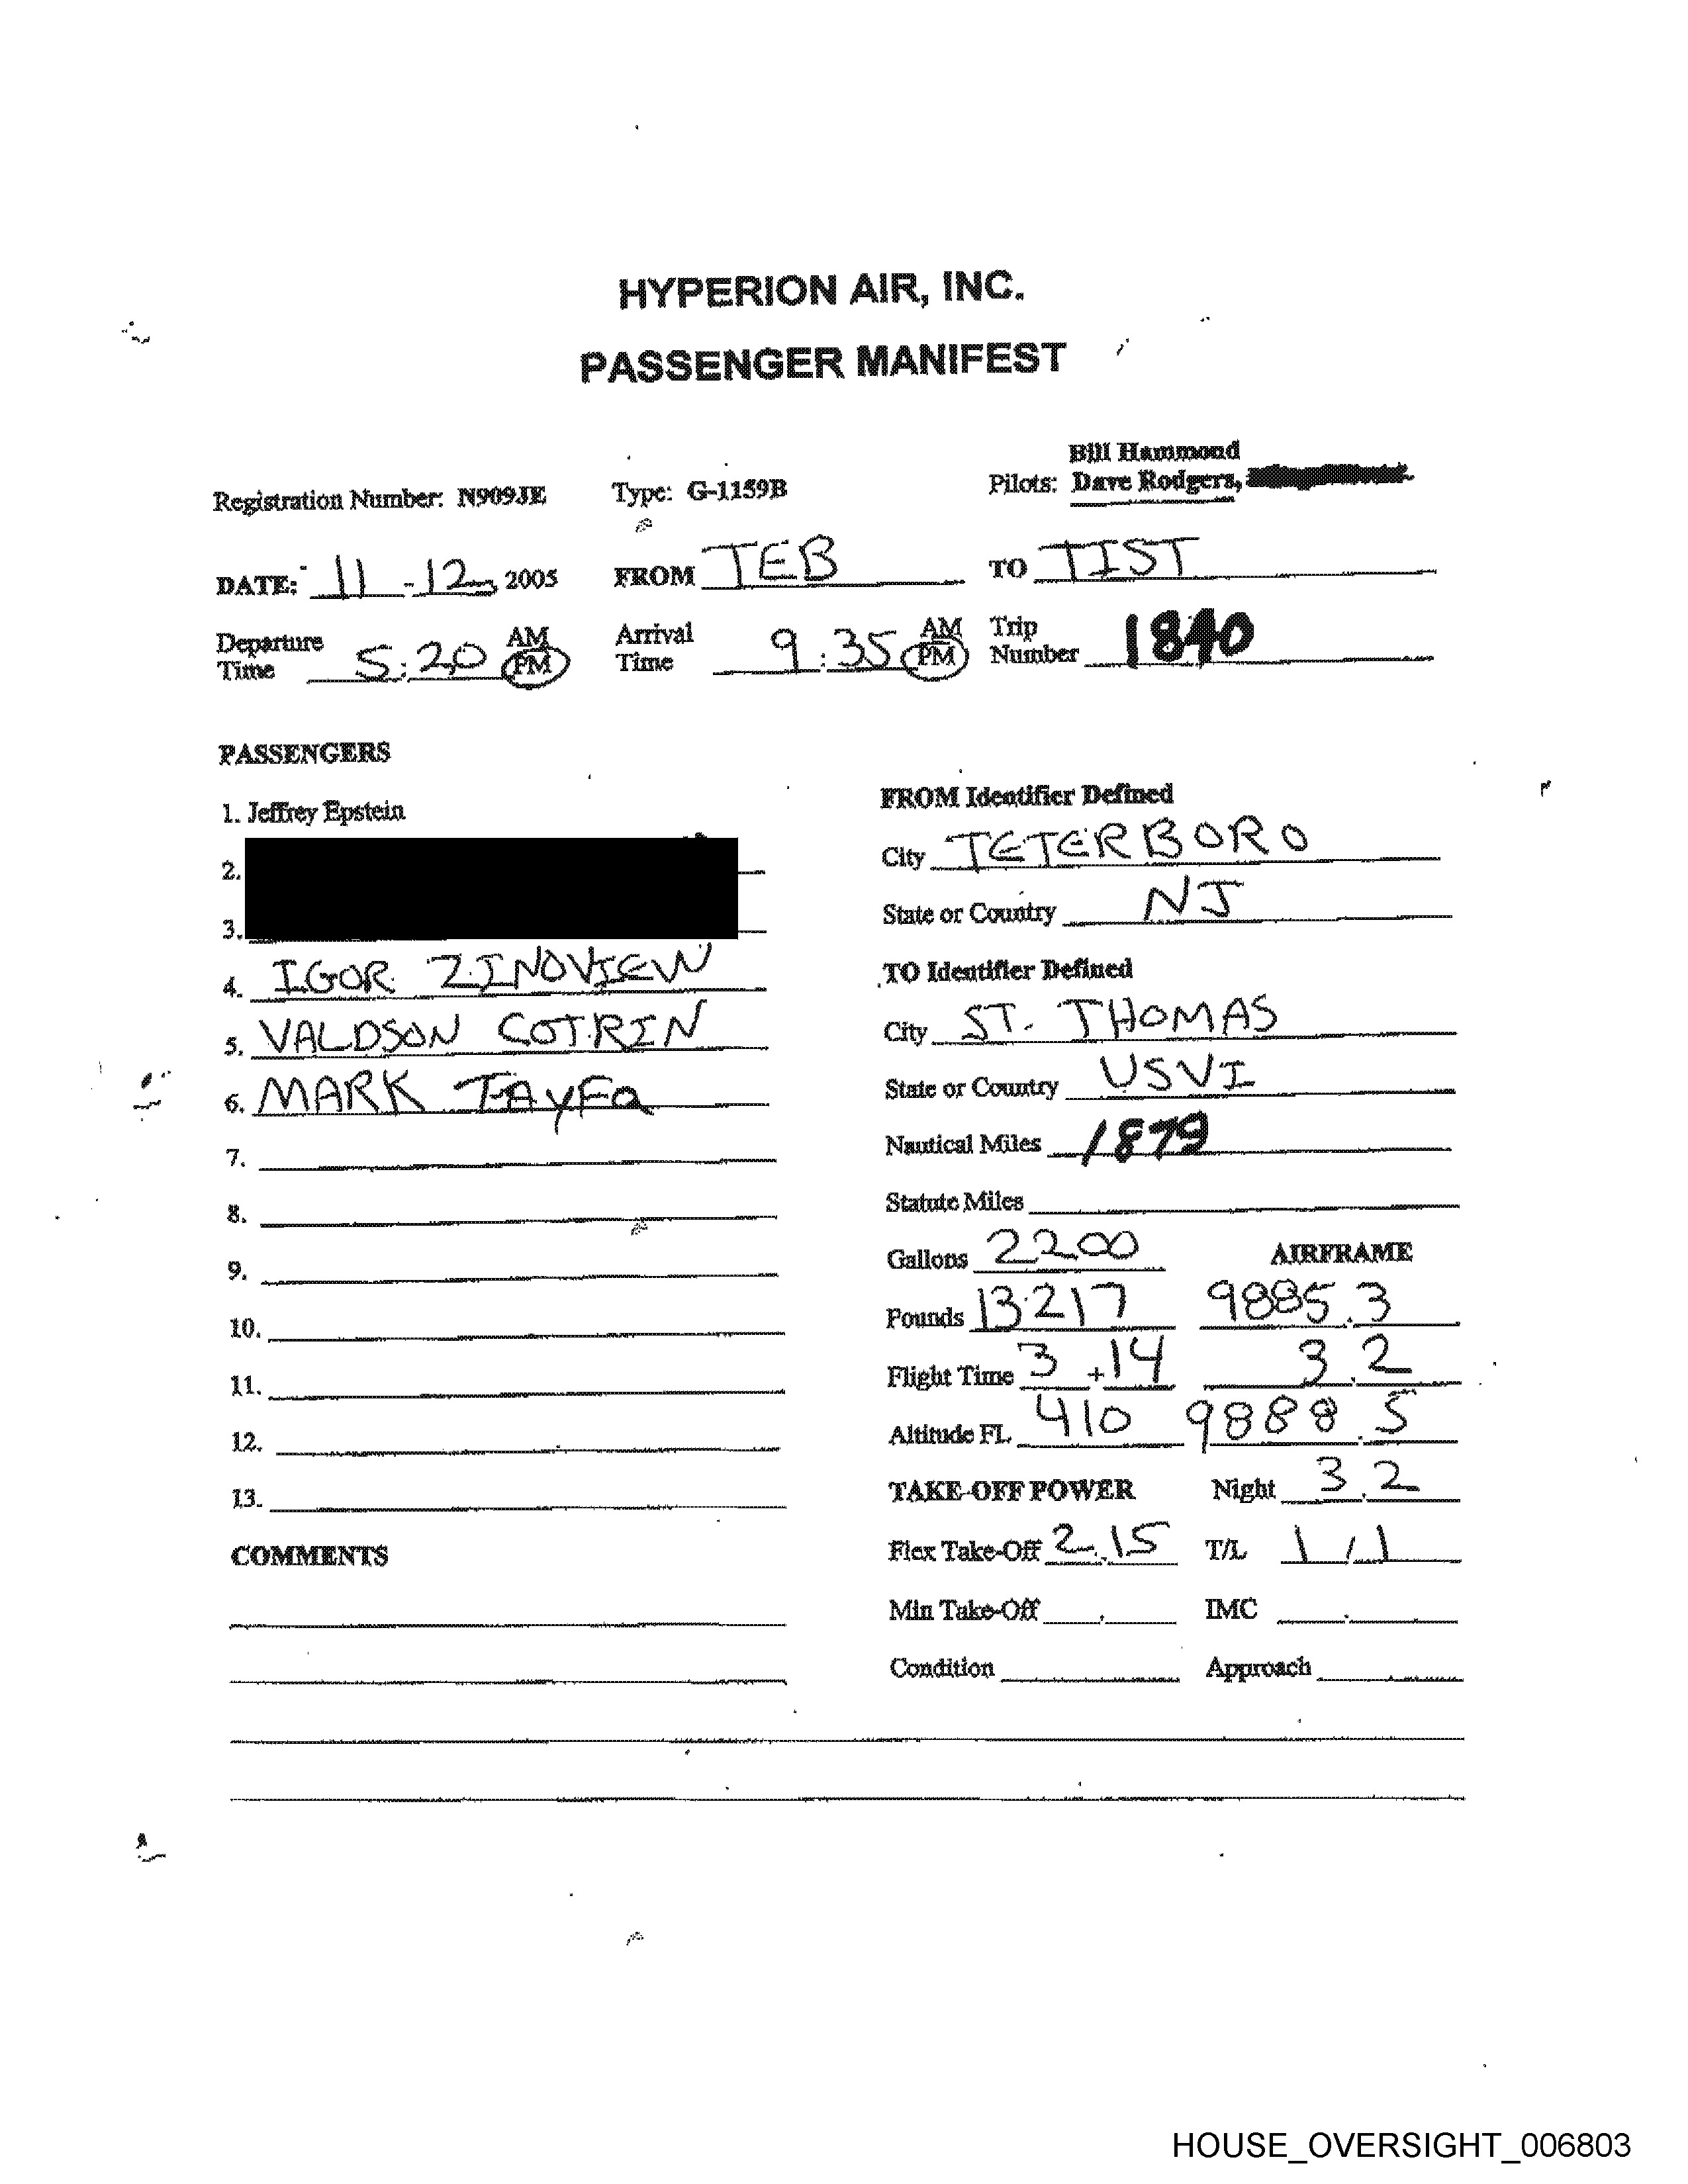 HYPERION AIR, INC.
PASSENGER MANIFEST
Bill Hammond
Registration Number: N909JE Type: G-1159B Pilots: Dave Rodgers,
DATE: 11-12, 2005 FROM TEB TO TIST
Departure Time 5:20 AM PM Arrival Time 9:35 AM PM Trip Number 1840
PASSENGERS
1. Jeffrey Epstein
2.
3.
4. IGOR ZINOVIEW
5. VALDSON COTRIN
6. MARK TAYFA
7.
8.
9.
10.
11.
12.
13.
COMMENTS
FROM Identifier Defined
City TETERBORO
State or Country NJ
TO Identifier Defined
City ST. THOMAS
State or Country USVI
Nautical Miles 1879
Statute Miles
Gallons 2200 AIRFRAME
Pounds 13217 9885.3
Flight Time 3+14 3.2
Altitude FL 410 9888.5
TAKE-OFF POWER Night 3.2
Flex Take-Off 2.15 T/L 1/1
Min Take-Off IMC
Condition Approach
HOUSE_OVERSIGHT_006803